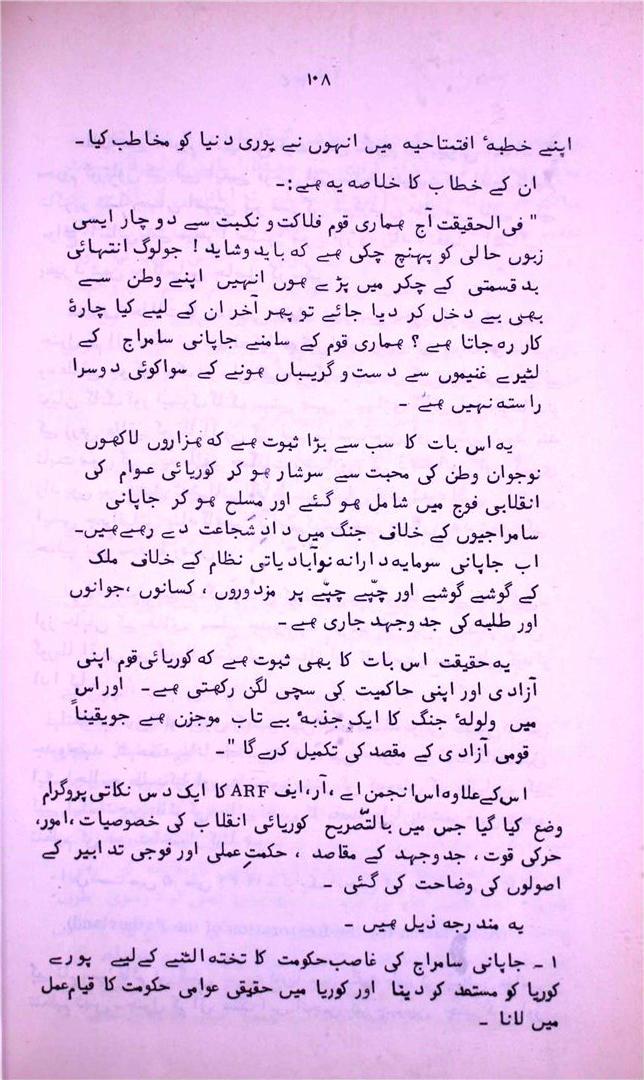 ۱۰۸
اپنے خطبہٴ افتتاحیہ میں انہوں نے پوری دنیا کو مخاطب کیا۔
ان کے خطاب کا خلاصہ یہ ہے:۔
" فی الحقیقت آج ہماری قوم فلاکت و نکبت سے دو چار ایسی
زبوں حالی کو پہنچ چکی ہے کہ باید و شاید ! جو لوگ انتہائی
بد قسمتی کے چکر میں پڑے ہوں انہیں اپنے وطن سے
بھی بے دخل کر دیا جائے تو پھر آخر ان کے لیے کیا چارہٴ
کار رہ جاتا ہے ؟ ہماری قوم کے سامنے جاپانی سامراج کے
لٹیرے غنیموں سے دست و گریباں ہونے کے سوا کوئی دوسرا
راستہ نہیں ہے ۔
یہ اس بات کا سب سے بڑا ثبوت ہے کہ ہزاروں لاکھوں
نوجوان وطن کی محبت سے سرشار ہو کر کوریائی عوام کی
انقلابی فوج میں شامل ہو گئے اور مسلح ہو کر جاپانی
سامراجیوں کے خلاف جنگ میں دادِ شجاعت دے رہے ہیں۔
اب جاپانی سرمایہ دارانہ نوآبادیاتی نظام کے خلاف ملک
کے گوشے گوشے اور چپّے چپّے پر مزدوروں ، کسانوں ،جوانوں
اور طلبہ کی جدوجہد جاری ہے ۔
یہ حقیقت اس بات کا بھی ثبوت ہے کہ کوریائی قوم اپنی
آزادی اور اپنی حاکمیت کی سچی لگن رکھتی ہے۔ اور اس
میں ولولہٴ جنگ کا ایک جذبہٴ بے تاب موجزن ہے جو یقیناً
قومی آزادی کے مقصد کی تکمیل کرے گا "۔
اس کے علاوہ اس انجمن اے ،آر، ایف ARF کا ایک دس نکاتی پروگرام
وضع کیا گیا جس میں بالتّصریح کوریائی انقلاب کی خصوصیات ،امور،
حرکی قوت ، جدوجہد کے مقاصد ، حکمتِ عملی اور فوجی تدابیر کے
اصولوں کی وضاحت کی گئی ۔
یہ مندرجہ ذیل ہیں ۔
۱ ۔ جاپانی سامراج کی غاصب حکومت کا تختہ الٹنے کے لیے پورے
کوریا کو مستعد کو دینا اور کوریا میں حقیقی عوامی حکومت کا قیام عمل
میں لانا ۔